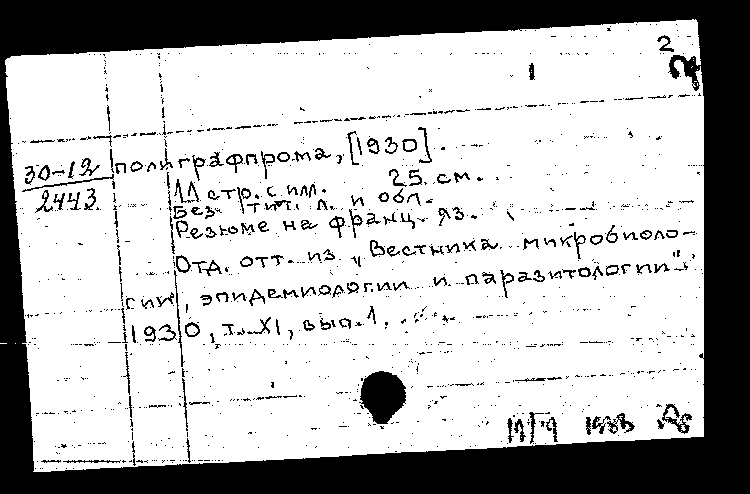 2
1
30-12 полиграфпрома, [1930].
2443 11 стр. с илл. 25 см.
Без. тит. л. и обл.
Резюме на франц. яз.
Отд. отт. из „Вестника микробиоло-
гии, эпидемиологии и паразитологии".
1930, т. XI, вып. 1.